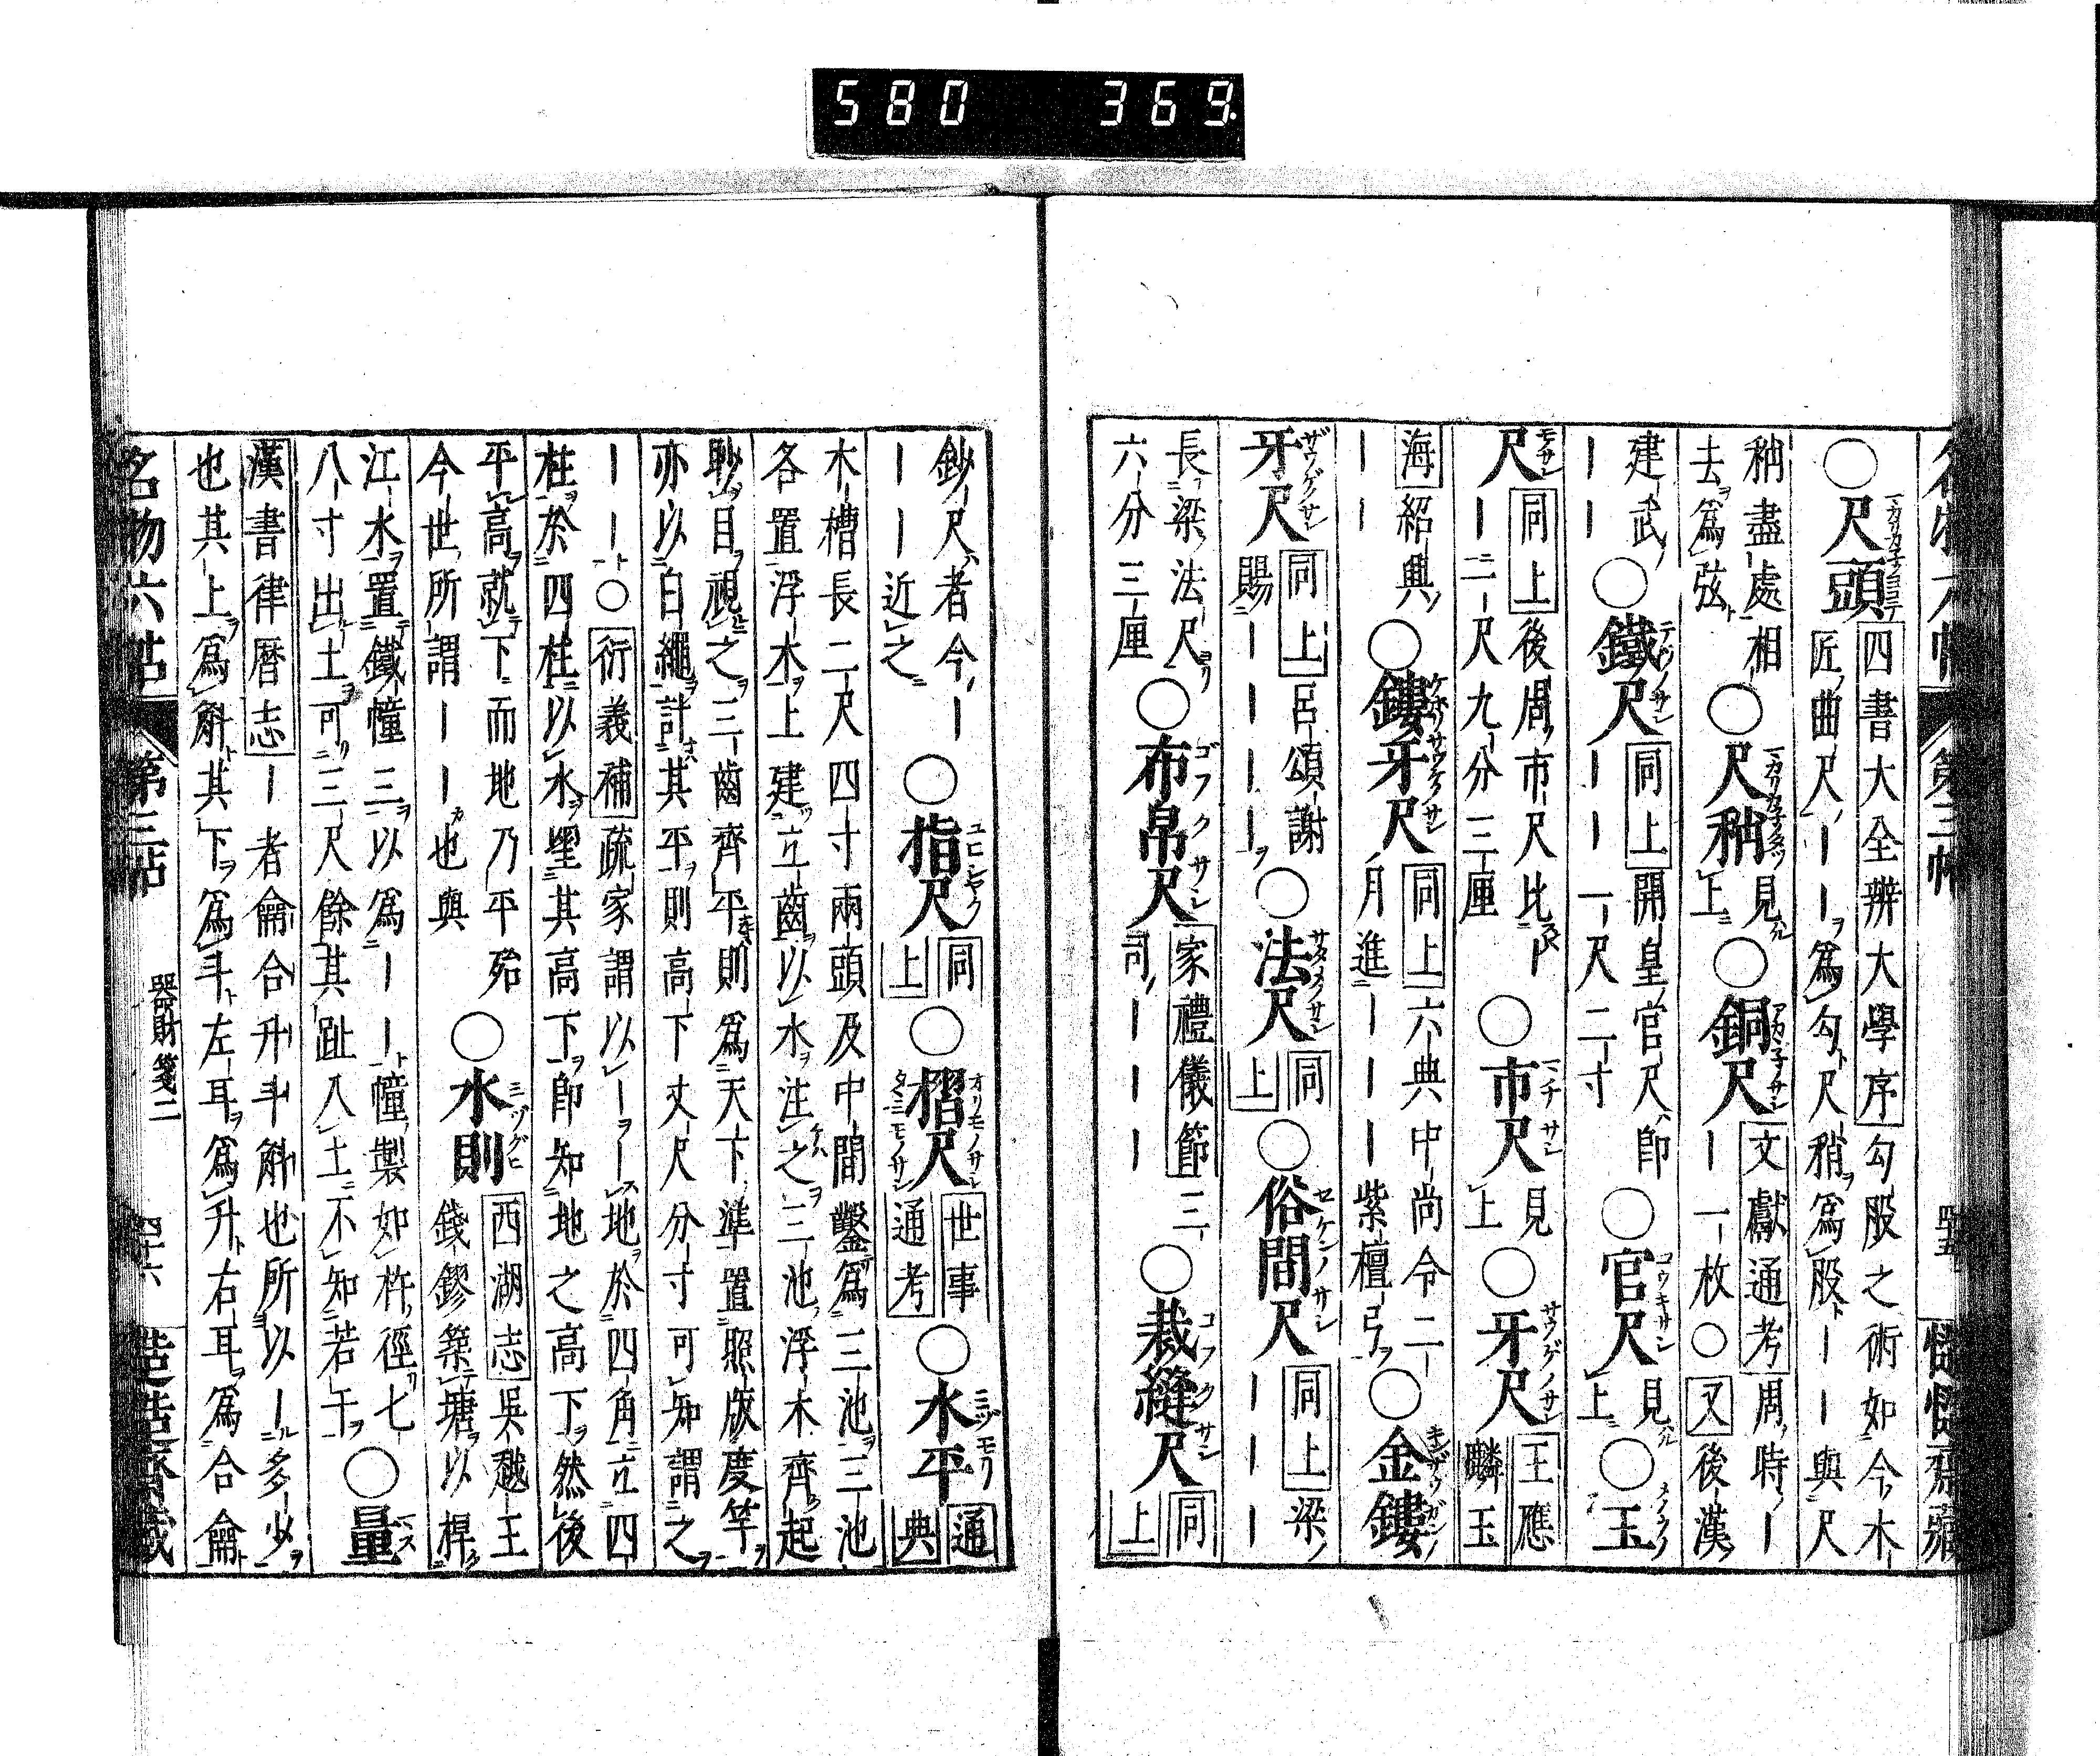 580 369
○尺頭 四書大全辨大學序 勾股之術如今木
匠曲尺――爲勾尺稍爲股――與尺
稍盡處相
去爲弦 ○尺稍 見上 ○銅尺 文獻通考 周時―
―一枚○又後漢
建武
―― ○鐵尺 同上 開皇官尺即
―――一尺二寸 ○官尺 見上 ○玉
尺 同上 後周市尺比―
―二尺九分三厘 ○市尺 見上 ○牙尺 王應麟玉
海 紹興
―― ○鏤牙尺 同上 六典中尚令二
月進―――紫檀弓 ○金鏤
牙尺 同上 呂頌謝
賜―――― ○法尺 同上 ○俗間尺 同上 梁
―――
長梁法尺
六分三厘 ○布帛尺 家禮儀節 三
司――― ○裁縫尺 同上
名物六帖 第三帖 器財箋二 四十六
鈔尺者今―
――近之 ○指尺 同上 ○摺尺 世事通考 ○水平 通典
木槽長二尺四寸兩頭及中間鑿爲三池三池
各置浮木上建立齒以水注之三池浮木齊起
眇目視之三齒齊平則爲天下準置照版度竿
亦以白繩計其平則高下丈尺分寸可知謂之
――○衍義補 疏家謂以――地於四角立四
柱於四柱以水望其高下即知地之高下然後
平高就下而地乃平殆
今世所謂――也與 ○水則 西湖志 吳越王
錢鏐築塘以捍
江水置鐵幢三以爲――幢製如杵徑七
八寸出土可三尺餘其趾入土不知若干 ○量
漢書律曆志 ―者龠合升斗斛也所以―多少
也其上爲斛其下爲斗左耳爲升右耳爲合龠